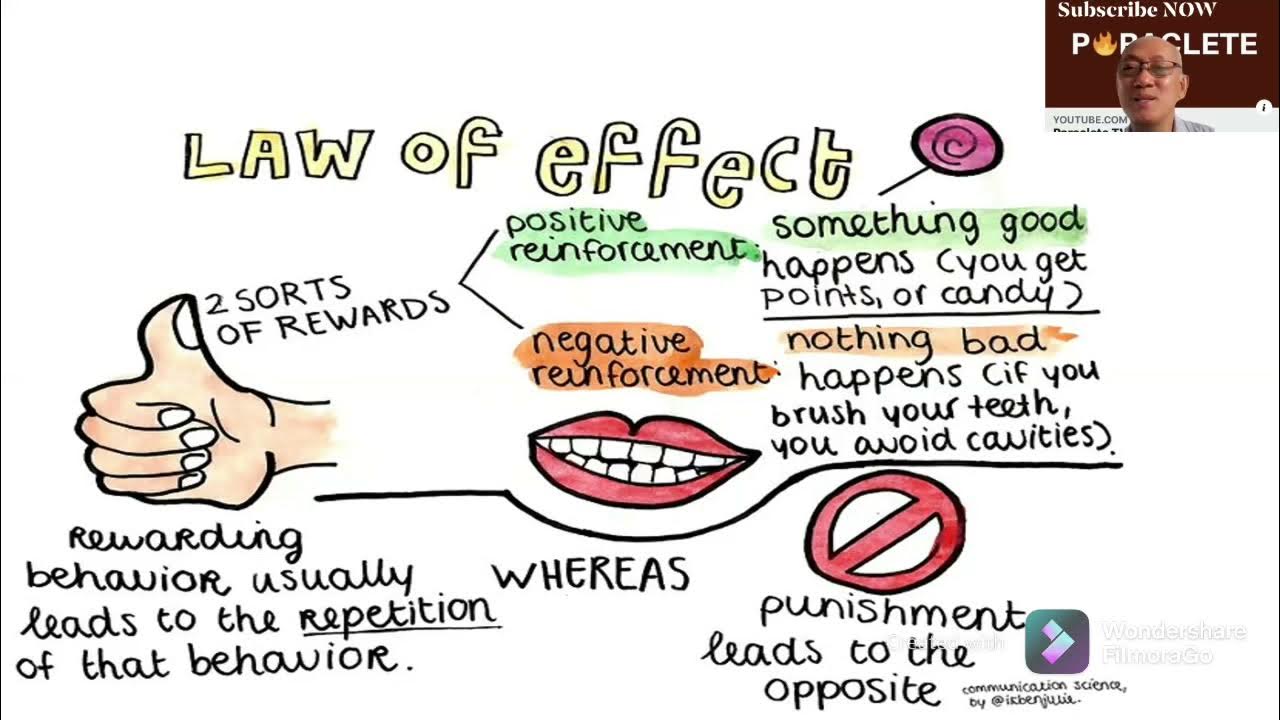 Subscribe NOW
P🔥RACLETE
YOUTUBE.COM
Paraclete TV
i
LAW OF effect
2 SORTS
OF REWARDS
positive
reinforcement:
something good
happens (you get
points, or candy)
negative
reinforcement:
nothing bad
happens (if you
brush your teeth,
you avoid cavities).
rewarding
behavior usually
leads to the repetition
of that behavior.
WHEREAS
punishment
leads to the
opposite
communication science,
by @ikbenjulie.
Created with
Wondershare
FilmoraGo